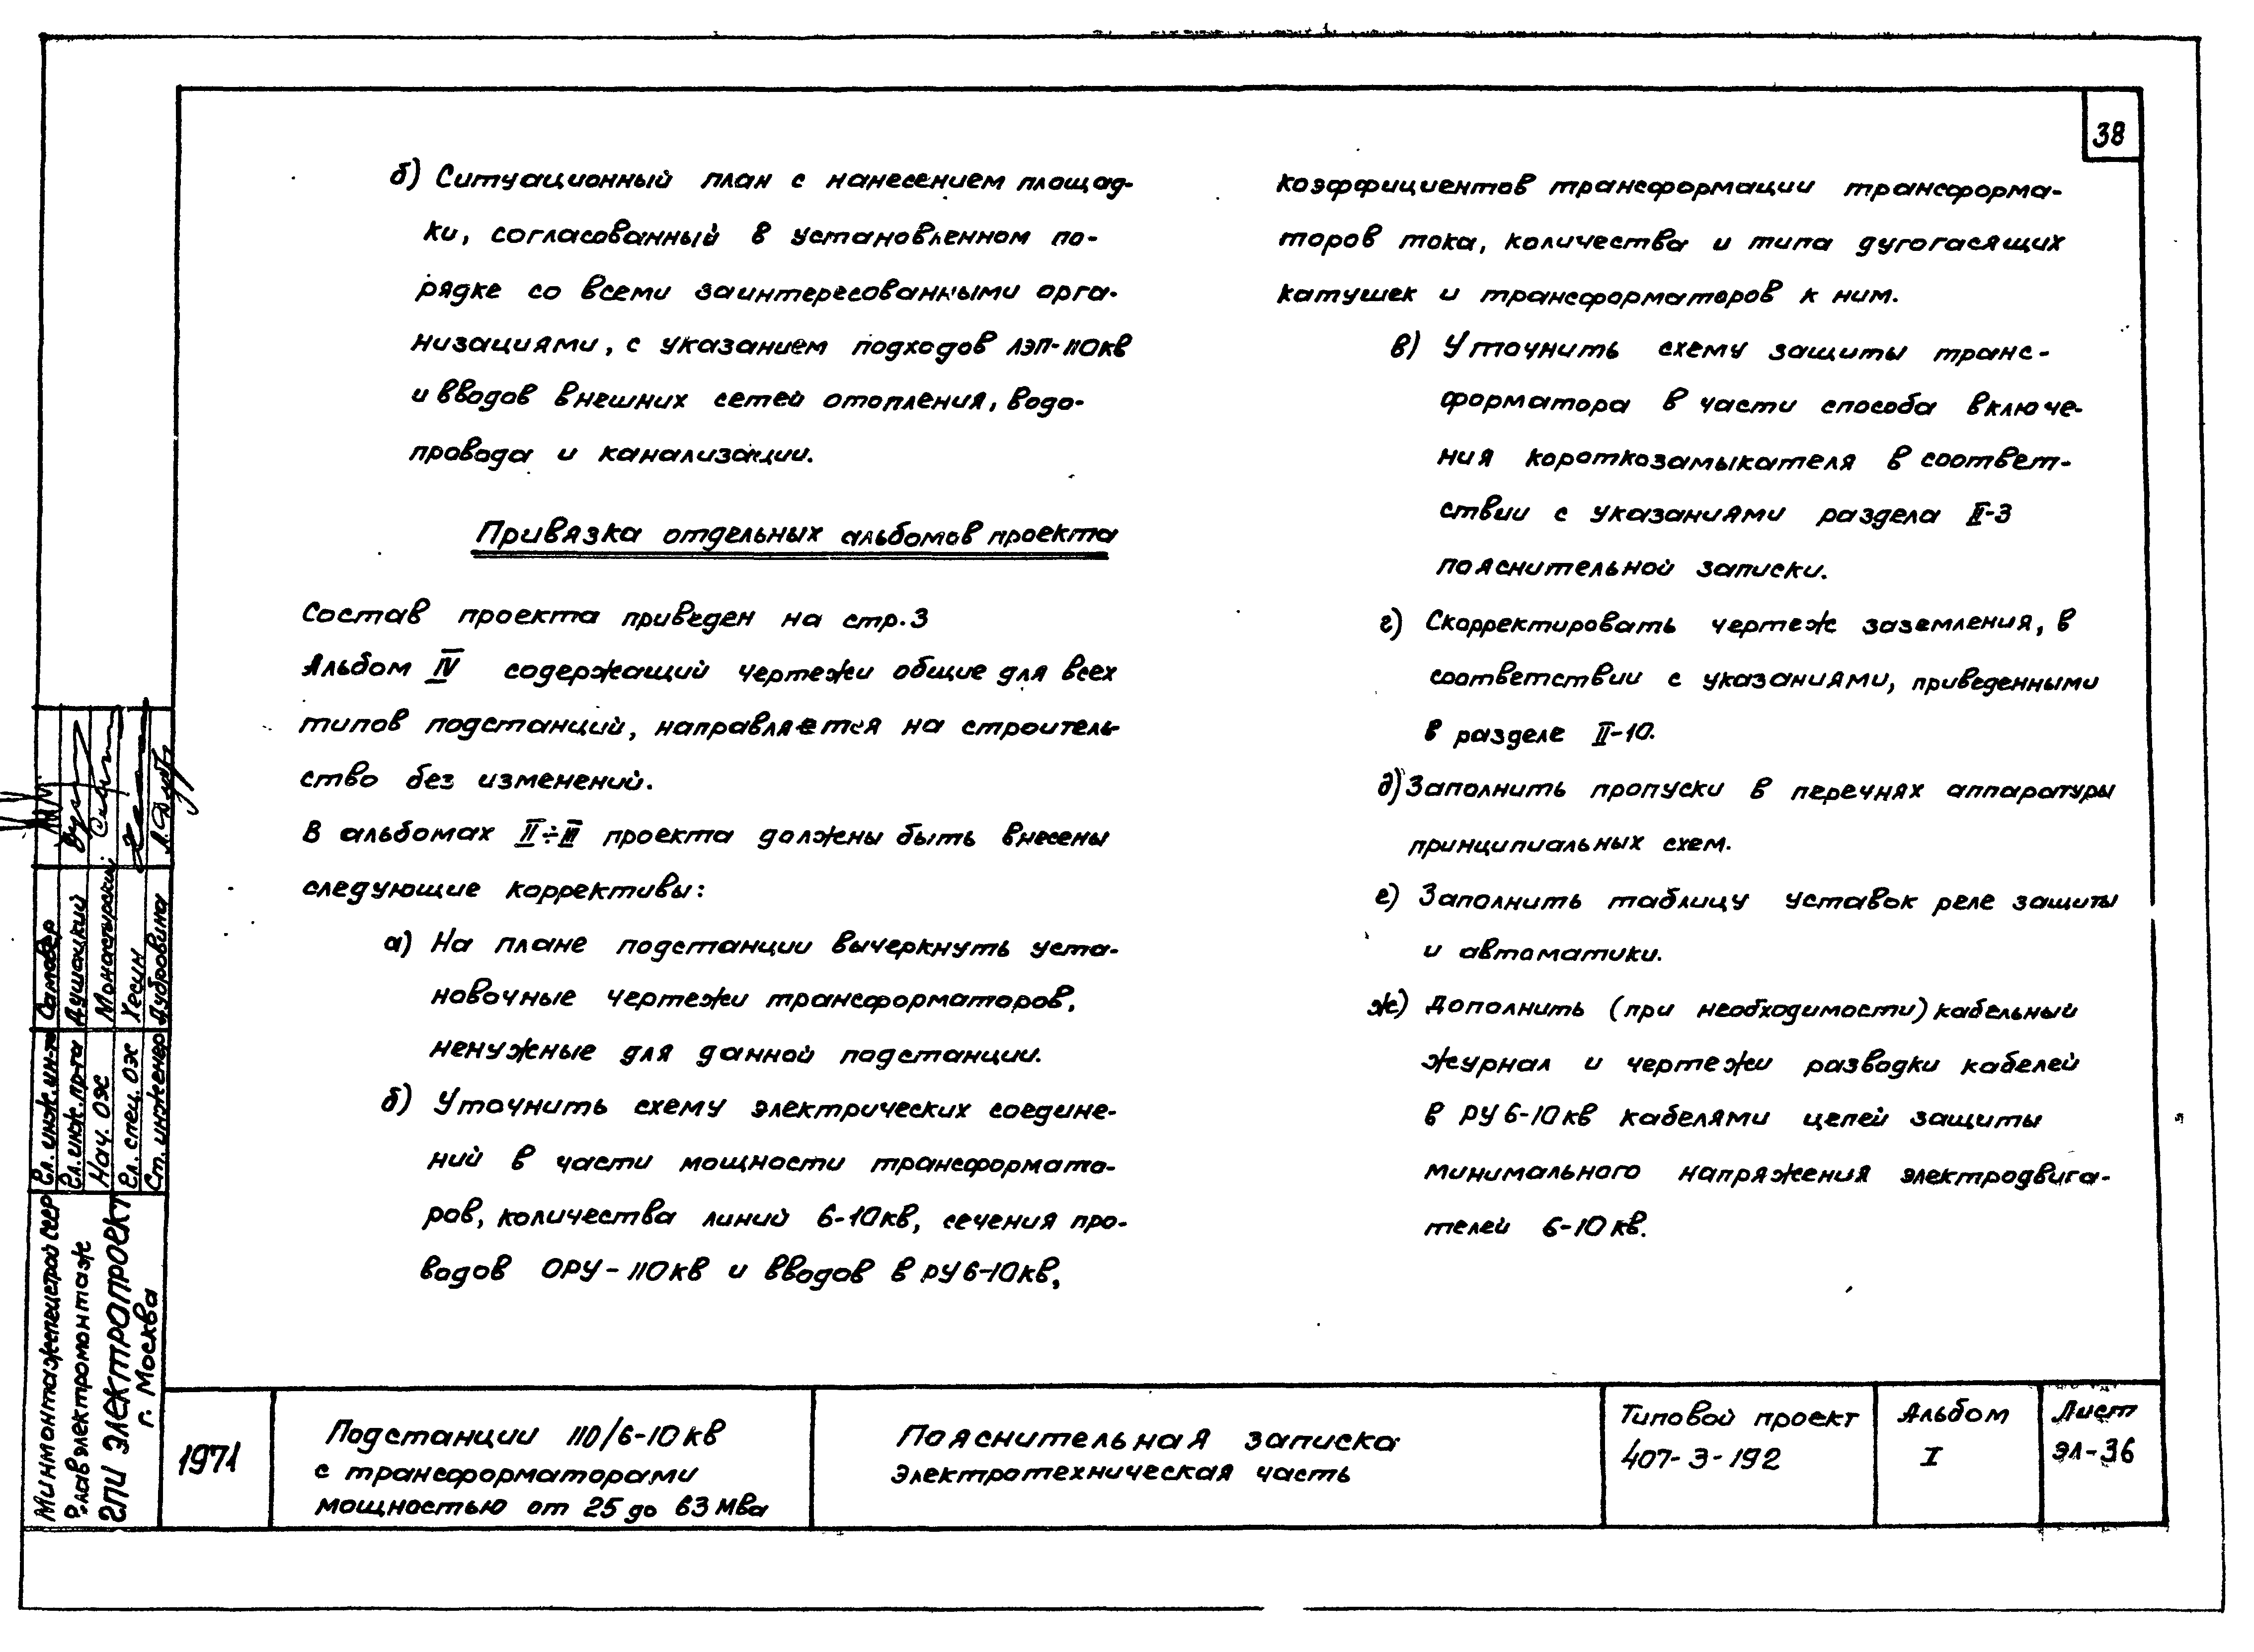 38
б) Ситуационный план с нанесением площад-
ки, согласованный в установленном по-
рядке со всеми заинтересованными орга-
низациями, с указанием подходов ЛЭП-110кв
и вводов внешних сетей отопления, водо-
провода и канализации.
Привязка отдельных альбомов проекта
Состав проекта приведен на стр.3
Альбом IV содержащий чертежи общие для всех
типов подстанций, направляется на строитель-
ство без изменений.
В альбомах II÷III проекта должны быть внесены
следующие коррективы:
а) На плане подстанции вычеркнуть уста-
новочные чертежи трансформаторов,
ненужные для данной подстанции.
б) Уточнить схему электрических соедине-
ний в части мощности трансформато-
ров, количества линий 6-10кв, сечения про-
водов ОРУ-110кв и вводов в РУ 6-10кв,
коэффициентов трансформации трансформа-
торов тока, количества и типа дугогасящих
катушек и трансформаторов к ним.
в) Уточнить схему защиты транс-
форматора в части способа включе-
ния короткозамыкателя в соответ-
ствии с указаниями раздела II-3
пояснительной записки.
г) Скорректировать чертеж заземления, в
соответствии с указаниями, приведенными
в разделе II-10.
д) Заполнить пропуски в перечнях аппаратуры
принципиальных схем.
е) Заполнить таблицу уставок реле защиты
и автоматики.
ж) Дополнить (при необходимости) кабельный
журнал и чертежи разводки кабелей
в РУ 6-10кв кабелями цепей защиты
минимального напряжения электродвига-
телей 6-10кв.
Гл. инж. ин-та Самовер
Гл. инж. пр-та Душацкий
Нач. ОЭС Монастырский
Гл. спец. ОЭС Хесин
Ст. инженер Дубровина
Минмонтажспецстрой СССР
Главэлектромонтаж
ГПИ Электропроект
г. Москва
1971
Подстанции 110/6-10кв
с трансформаторами
мощностью от 25 до 63 Мва
Пояснительная записка
Электротехническая часть
Типовой проект
407-3-192
Альбом
I
Лист
ЭЛ-36